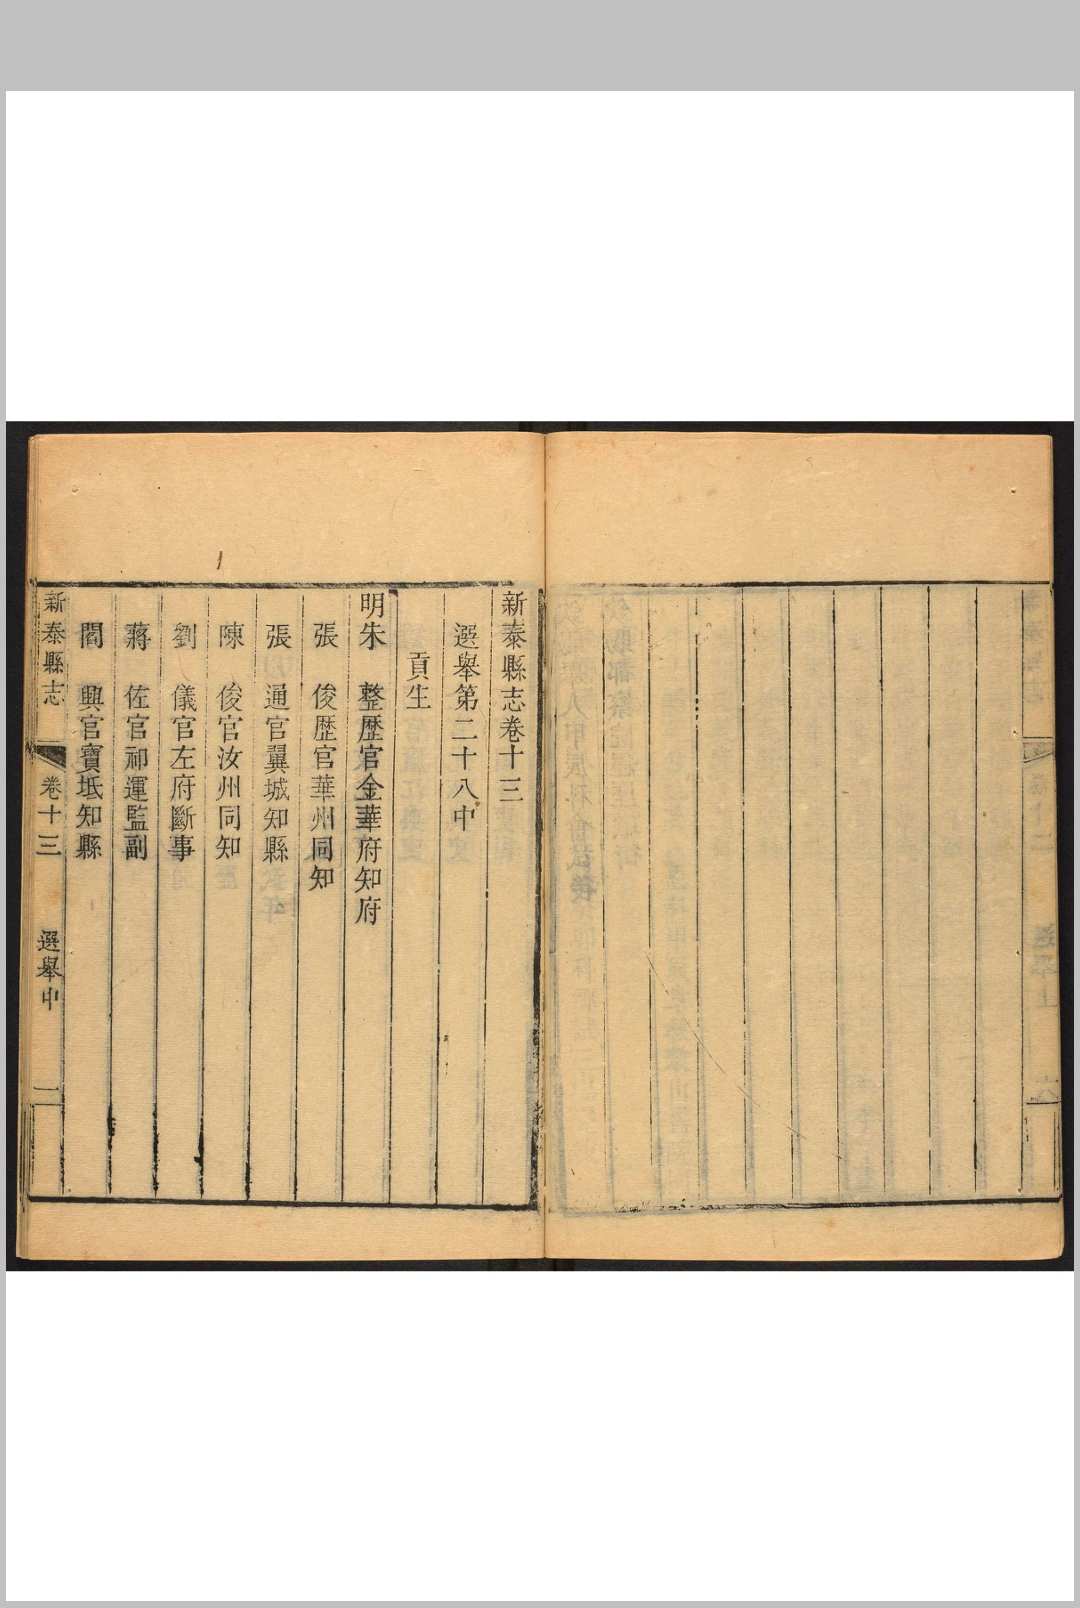 新泰縣志卷十三
選舉第二十八中
貢生
明朱 整歴官金華府知府
張 俊歴官華州同知
張 通官翼城知縣
陳 俊官汝州同知
劉 儀官左府斷事
蔣 佐官䢴運監副
閻 興官寶坻知縣
新泰縣志 卷十三 選舉中 一